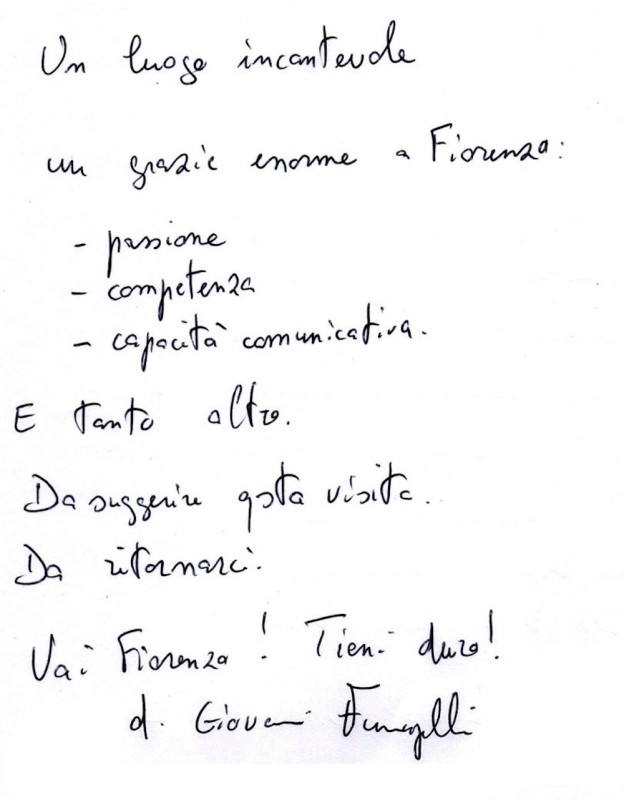 Un luogo incantevole
un grazie enorme a Fiorenza:
- passione
- competenza
- capacità comunicativa.
E tanto altro.
Da suggerire qsta visita.
Da ritornarci.
Vai Fiorenza! Tieni duro!
d. Giovanni Fumagalli